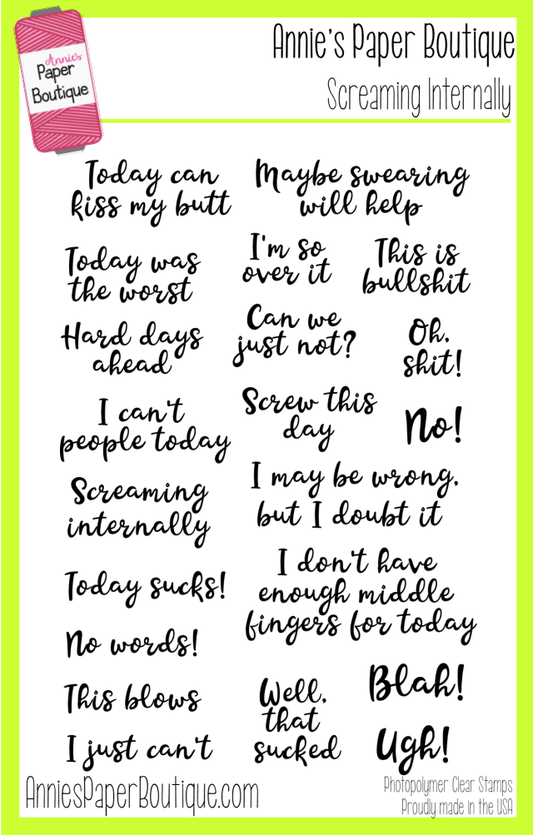 Annie's
Paper
Boutique
Annie's Paper Boutique
Screaming Internally
Today can
kiss my butt
Maybe swearing
will help
Today was
the worst
I'm so
over it
This is
bullshit
Hard days
ahead
Can we
just not?
Oh,
shit!
I can't
people today
Screw this
day
No!
Screaming
internally
I may be wrong,
but I doubt it
Today sucks!
I don't have
enough middle
fingers for today
No words!
This blows
Well,
that
sucked
Blah!
I just can't
Ugh!
AnniesPaperBoutique.com
Photopolymer Clear Stamps
Proudly made in the USA